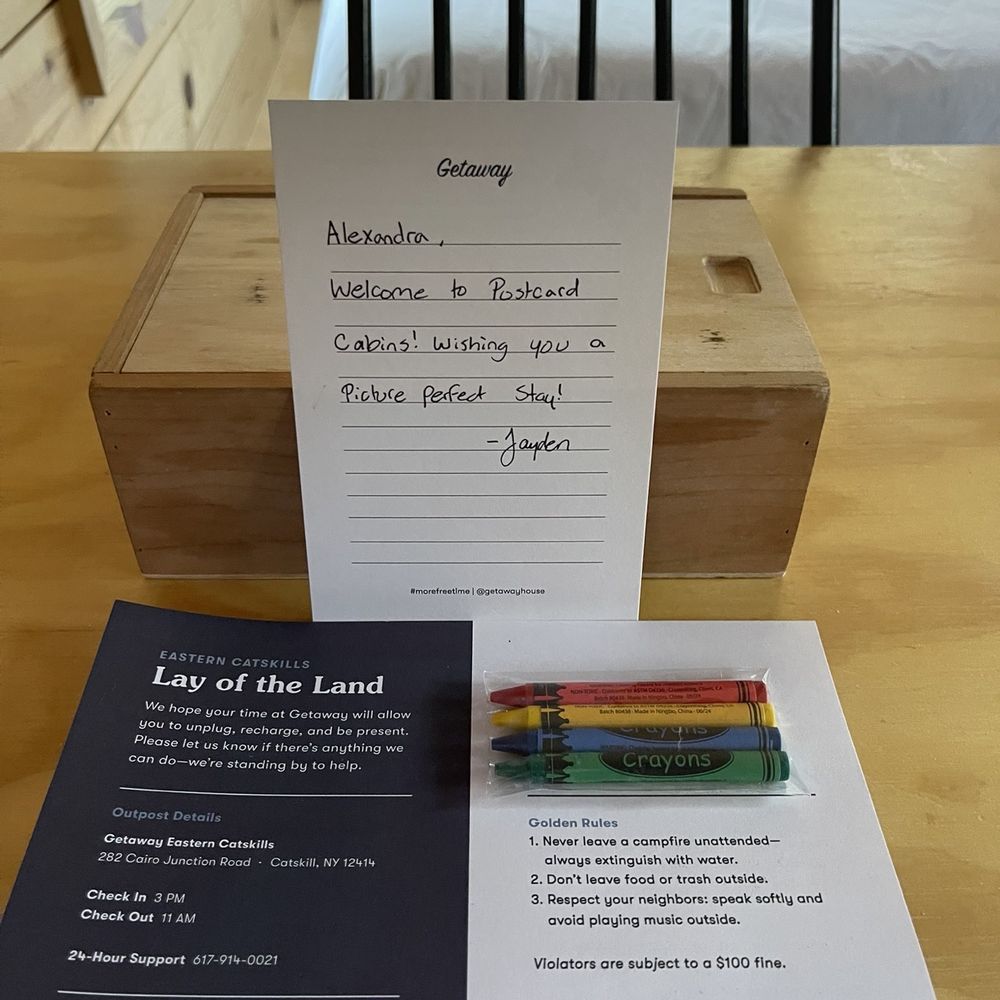 Getaway
Alexandra,
Welcome to Postcard
Cabins! Wishing you a
Picture perfect Stay!
-Jayden
#morefreetime | @getawayhouse
EASTERN CATSKILLS
Lay of the Land
We hope your time at Getaway will allow
you to unplug, recharge, and be present.
Please let us know if there's anything we
can do—we're standing by to help.
Outpost Details
Getaway Eastern Catskills
282 Cairo Junction Road · Catskill, NY 12414
Check In 3 PM
Check Out 11 AM
24-Hour Support 617-914-0021
Batch 80438 · Made in Ningbo, China · 06/24
Batch 80438 · Made in Ningbo, China · 06/24
Crayons
Crayons
Golden Rules
1. Never leave a campfire unattended—
always extinguish with water.
2. Don't leave food or trash outside.
3. Respect your neighbors: speak softly and
avoid playing music outside.
Violators are subject to a $100 fine.